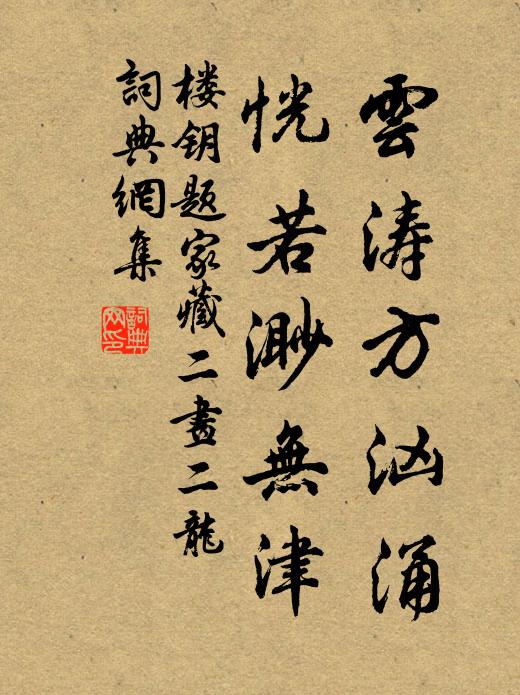 雲涛方汹涌
恍若渺無津
楼钥题家藏二畫二龍
詞典網集
詞典网印